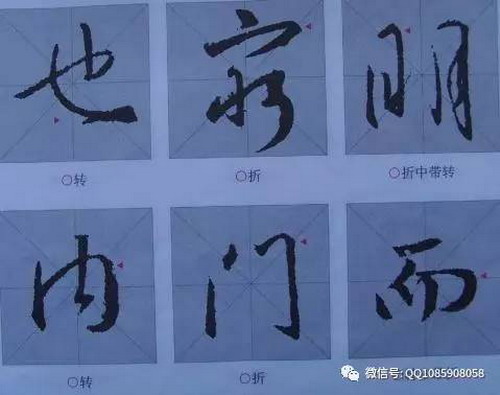 也 明
○转 ○折 ○折中带转
内 门 而
○转 ○折
微信号: QQ1085908058